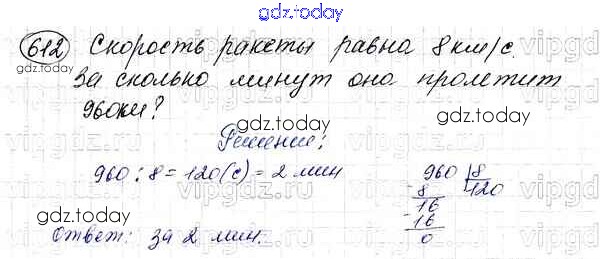 gdz.today
612 Скорость ракеты равна 8 км/с.
За сколько минут она пролетит
960км?
gdz.today
Решение:
960 : 8 = 120 (с) = 2 мин
960 8
8 120
16
- 16
0
gdz.today
gdz.today
Ответ: за 2 мин.